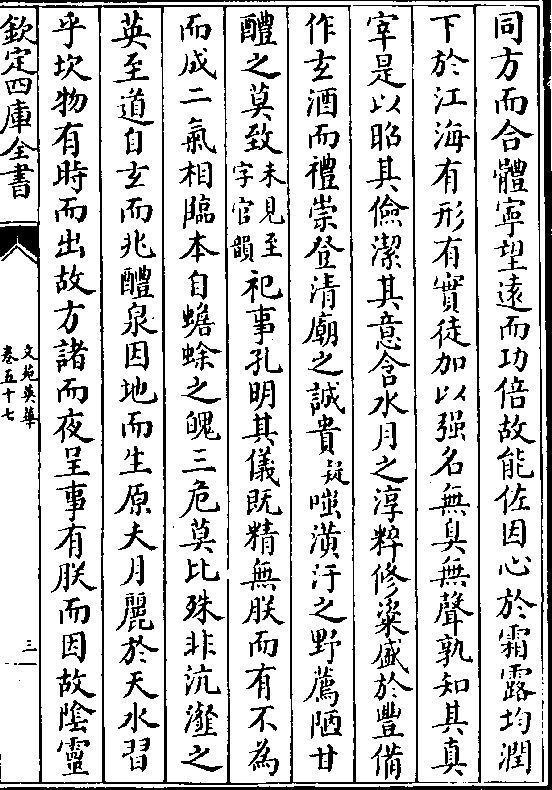 同方而合體寧望遠而功倍故能佐因心於霜露均潤
下於江海有形有實徒加以强名無臭無聲孰知其真
宰是以昭其儉潔其意含水月之淳粹修粢盛於豐備
作玄酒而禮崇登清廟之誠貴疑嗤潢汙之野薦陋甘
醴之莫致未見至字官韻祀事孔明其儀既精無朕而有不為
而成二氣相臨本自蟾蜍之魄三危莫比殊非沆瀣之
英至道自玄而兆醴泉因地而生原夫月麗於天水習
乎坎物有時而出故方諸而夜呈事有朕而因故陰靈
欽定四庫全書
文苑英華
卷五十七
三